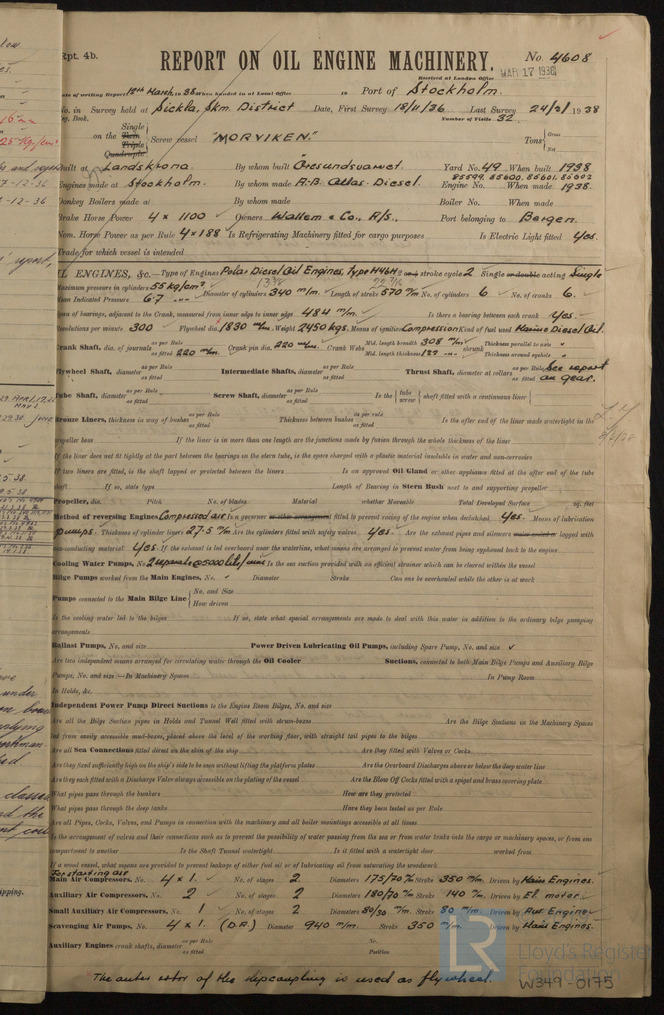 Rpt. 4b.
REPORT ON OIL ENGINE MACHINERY.
No. 4608
Received at London Office
MAR 17 1938
Date of writing Report 12th March, 1938 When handed in at Local Office 19 Port of Stockholm.
No. in Survey held at Sickla, Skm. District Date, First Survey 18/11/36 Last Survey 24/2/1938
Reg. Book. Number of Visits 32
on the Single Twin Triple Quadruple Screw vessel "MORVIKEN." Tons Gross Net
Built at Landskrona By whom built Öresundsvarvet. Yard No. 49 When built 1938
85599, 85600, 85601, 85602
Engines made at Stockholm. By whom made A.B. Atlas-Diesel. Engine No. When made 1938.
Donkey Boilers made at By whom made Boiler No. When made
Brake Horse Power 4 x 1100 Owners Wallem & Co., A/S., Port belonging to Bergen.
Nom. Horse Power as per Rule 4 x 188 Is Refrigerating Machinery fitted for cargo purposes Is Electric Light fitted yes.
Trade for which vessel is intended
OIL ENGINES, &c.—Type of Engines Polar Diesel Oil Engines, Type H46M 2 or 4 stroke cycle 2 Single or double acting Single
Maximum pressure in cylinders 55 kg/cm² Diameter of cylinders 340 m/m. Length of stroke 570 m/m No. of cylinders 6 No. of cranks 6.
Mean Indicated Pressure 6.7
Span of bearings, adjacent to the Crank, measured from inner edge to inner edge 484 m/m. Is there a bearing between each crank yes.
Revolutions per minute 300 Flywheel dia. 1830 m/m. Weight 2450 kgs. Means of ignition Compression Kind of fuel used Marine Diesel Oil.
Crank Shaft, dia. of journals as per Rule as fitted 220 m/m. Crank pin dia. 220 m/m. Crank Webs Mid. length breadth 308 m/m. Mid. length thickness 122 shrunk Thickness parallel to axis Thickness around eyehole
Flywheel Shaft, diameter as per Rule as fitted Intermediate Shafts, diameter as per Rule as fitted Thrust Shaft, diameter at collars as per Rule as fitted See report on gear.
Tube Shaft, diameter as per Rule as fitted Screw Shaft, diameter as per Rule as fitted Is the tube screw shaft fitted with a continuous liner
Bronze Liners, thickness in way of bushes as per Rule as fitted Thickness between bushes as per rule as fitted Is the after end of the liner made watertight in the
propeller boss If the liner is in more than one length are the junctions made by fusion through the whole thickness of the liner
If the liner does not fit tightly at the part between the bearings in the stern tube, is the space charged with a plastic material insoluble in water and non-corrosive
If two liners are fitted, is the shaft lapped or protected between the liners Is an approved Oil Gland or other appliance fitted at the after end of the tube
shaft If so, state type Length of Bearing in Stern Bush next to and supporting propeller
Propeller, dia. Pitch No. of blades Material whether Moveable Total Developed Surface sq. feet
Method of reversing Engines Compressed air Is a governor or other arrangement fitted to prevent racing of the engine when declutched yes. Means of lubrication
pumps. Thickness of cylinder liners 27.5 m/m Are the cylinders fitted with safety valves yes. Are the exhaust pipes and silencers water cooled or lagged with
non-conducting material yes. If the exhaust is led overboard near the waterline, what means are arranged to prevent water being syphoned back to the engine
Cooling Water Pumps, No. 2 separate @ 5000 lit/min Is the sea suction provided with an efficient strainer which can be cleared within the vessel
Bilge Pumps worked from the Main Engines, No. Diameter Stroke Can one be overhauled while the other is at work
Pumps connected to the Main Bilge Line No. and Size How driven
Is the cooling water led to the bilges If so, state what special arrangements are made to deal with this water in addition to the ordinary bilge pumping
arrangements
Ballast Pumps, No. and size Power Driven Lubricating Oil Pumps, including Spare Pump, No. and size
Are two independent means arranged for circulating water through the Oil Cooler Suctions, connected to both Main Bilge Pumps and Auxiliary Bilge
Pumps, No. and size:—In Machinery Spaces In Pump Room
In Holds, &c.
Independent Power Pump Direct Suctions to the Engine Room Bilges, No. and size
Are all the Bilge Suction pipes in Holds and Tunnel Well fitted with strum-boxes Are the Bilge Suctions in the Machinery Spaces
led from easily accessible mud-boxes, placed above the level of the working floor, with straight tail pipes to the bilges
Are all Sea Connections fitted direct on the skin of the ship Are they fitted with Valves or Cocks
Are they fixed sufficiently high on the ship's side to be seen without lifting the platform plates Are the Overboard Discharges above or below the deep water line
Are they each fitted with a Discharge Valve always accessible on the plating of the vessel Are the Blow Off Cocks fitted with a spigot and brass covering plate
What pipes pass through the bunkers How are they protected
What pipes pass through the deep tanks Have they been tested as per Rule
Are all Pipes, Cocks, Valves, and Pumps in connection with the machinery and all boiler mountings accessible at all times
Is the arrangement of valves and their connections such as to prevent the possibility of water passing from the sea or from water tanks into the cargo or machinery spaces, or from one
compartment to another Is the Shaft Tunnel watertight Is it fitted with a watertight door worked from
If a wood vessel, what means are provided to prevent leakage of either fuel oil or of lubricating oil from saturating the woodwork
For starting air
Main Air Compressors, No. 4 x 1. No. of stages 2 Diameters 175/70 m/m Stroke 350 m/m. Driven by Main Engines.
Auxiliary Air Compressors, No. 2 No. of stages 2 Diameters 180/70 m/m Stroke 140 m/m. Driven by El. motor
Small Auxiliary Air Compressors, No. 1 No. of stages 2 Diameters 80/30 m/m. Stroke 80 m/m. Driven by Aux. Engine
Scavenging Air Pumps, No. 4 x 1. (D.A.) Diameter 940 m/m. Stroke 350 m/m. Driven by Main Engines.
Auxiliary Engines crank shafts, diameter as per Rule as fitted No. Position
The outer rotor of the slipcoupling is used as flywheel.
LR Lloyd's Register Foundation
W349-0175